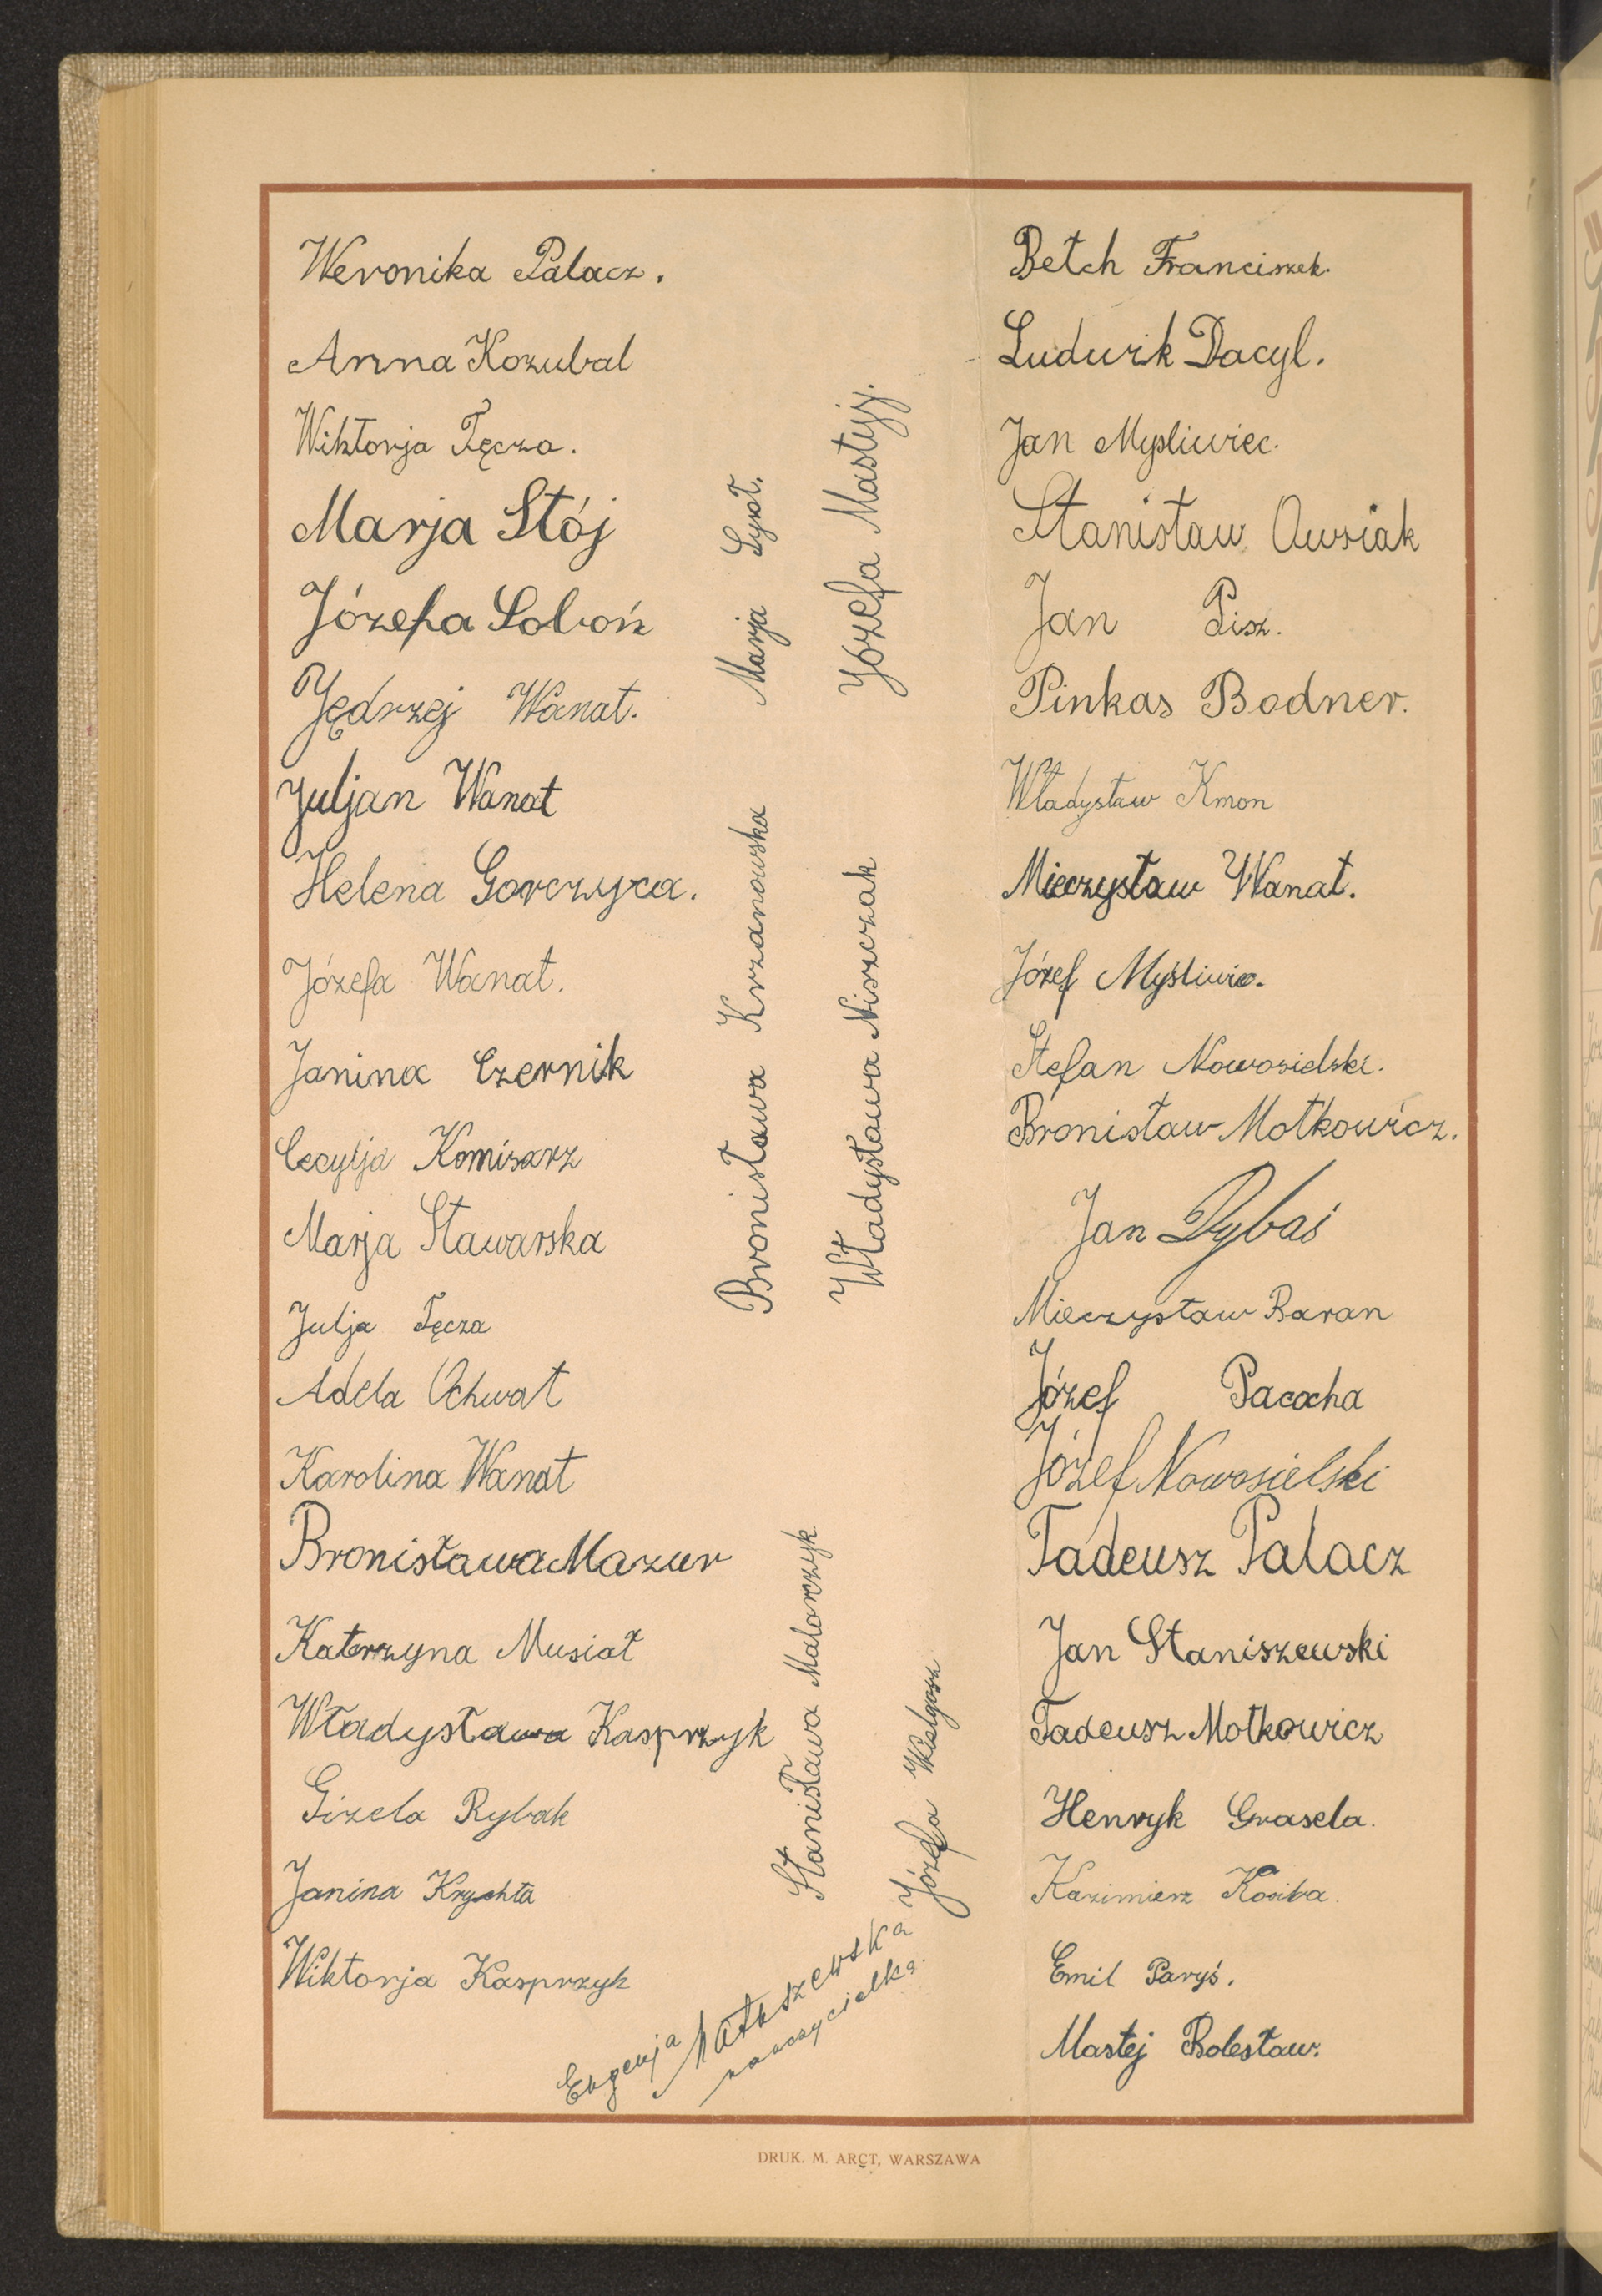 Weronika Palacz.
Anna Kozubal
Wiktorja Tęcza.
Marja Stój
Józefa Soboń
Jędrzej Wanat.
Juljan Wanat
Helena Gorczyca.
Józefa Wanat.
Janina Czernik
Cecylja Komisarz
Marja Stawarska
Julja Tęcza
Adela Ochwat
Karolina Wanat
Bronisława Mazur
Katarzyna Musiał
Władysława Kasprzyk
Gizela Rybak
Janina Krychta
Wiktorja Kasprzyk
Marja
Józefa Mastyj.
Bronisława Krzanowska
Władysława Niszczak
Stanisława Malarczyk
Józefa Wielgosz
Eugenja Matuszewska
nauczycielka.
Betch Franciszek.
Ludwik Dacyl.
Jan Myśliwiec.
Stanisław Owsiak
Jan Pisz.
Pinkas Bodner.
Władysław Kmon
Mieczysław Wanat.
Józef Myśliwiec.
Stefan Nowosielski.
Bronisław Motkowicz.
Jan Dybaś
Mieczysław Baran
Józef Pacocha
Józef Nowosielski
Tadeusz Palacz
Jan Staniszewski
Tadeusz Motkowicz
Henryk Grasela.
Kazimierz Kosiba.
Emil Paryś.
Mastej Bolesław.
DRUK. M. ARCT, WARSZAWA